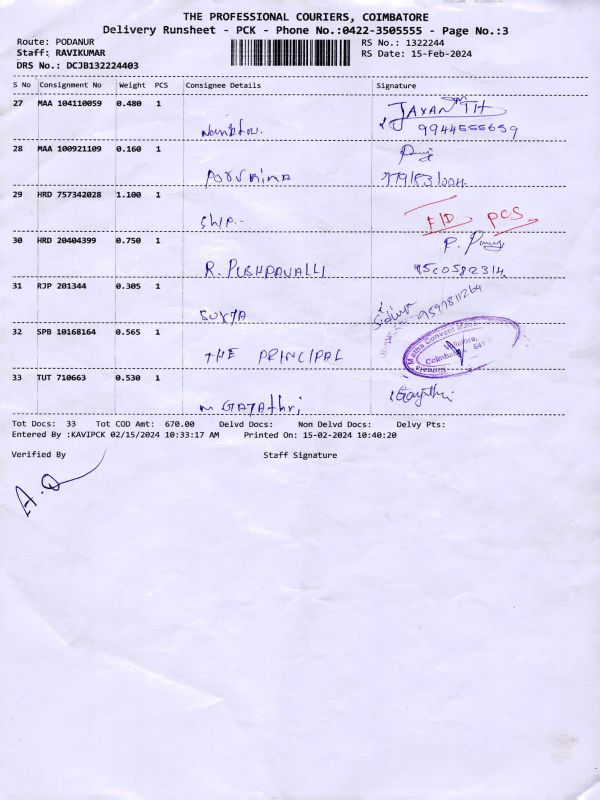 THE PROFESSIONAL COURIERS, COIMBATORE
Delivery Runsheet - PCK - Phone No.:0422-3505555 - Page No.:3
Route: PODANUR
RS No.: 1322244
Staff: RAVIKUMAR
RS Date: 15-Feb-2024
DRS No.: DCJB132224403
S No Consignment No Weight PCS Consignee Details Signature
27 MAA 104110059 0.480 1
JAYANTH
9944555659
28 MAA 100921109 0.160 1
Poornima
29 HRD 757342028 1.100 1
Ship
F/D, PCS
30 HRD 20404399 0.750 1
R. PUSHPAVALLI 9500582314
31 RJP 201344 0.305 1
9597811264
SURYA
32 SPB 10168164 0.565 1
THE PRINCIPAL
Coimbatore
33 TUT 710663 0.530 1
Gayathri
M GAYAthri
Tot Docs: 33 Tot COD Amt: 670.00 Delvd Docs: Non Delvd Docs: Delvy Pts:
Entered By :KAVIPCK 02/15/2024 10:33:17 AM Printed On: 15-02-2024 10:40:20
Verified By Staff Signature